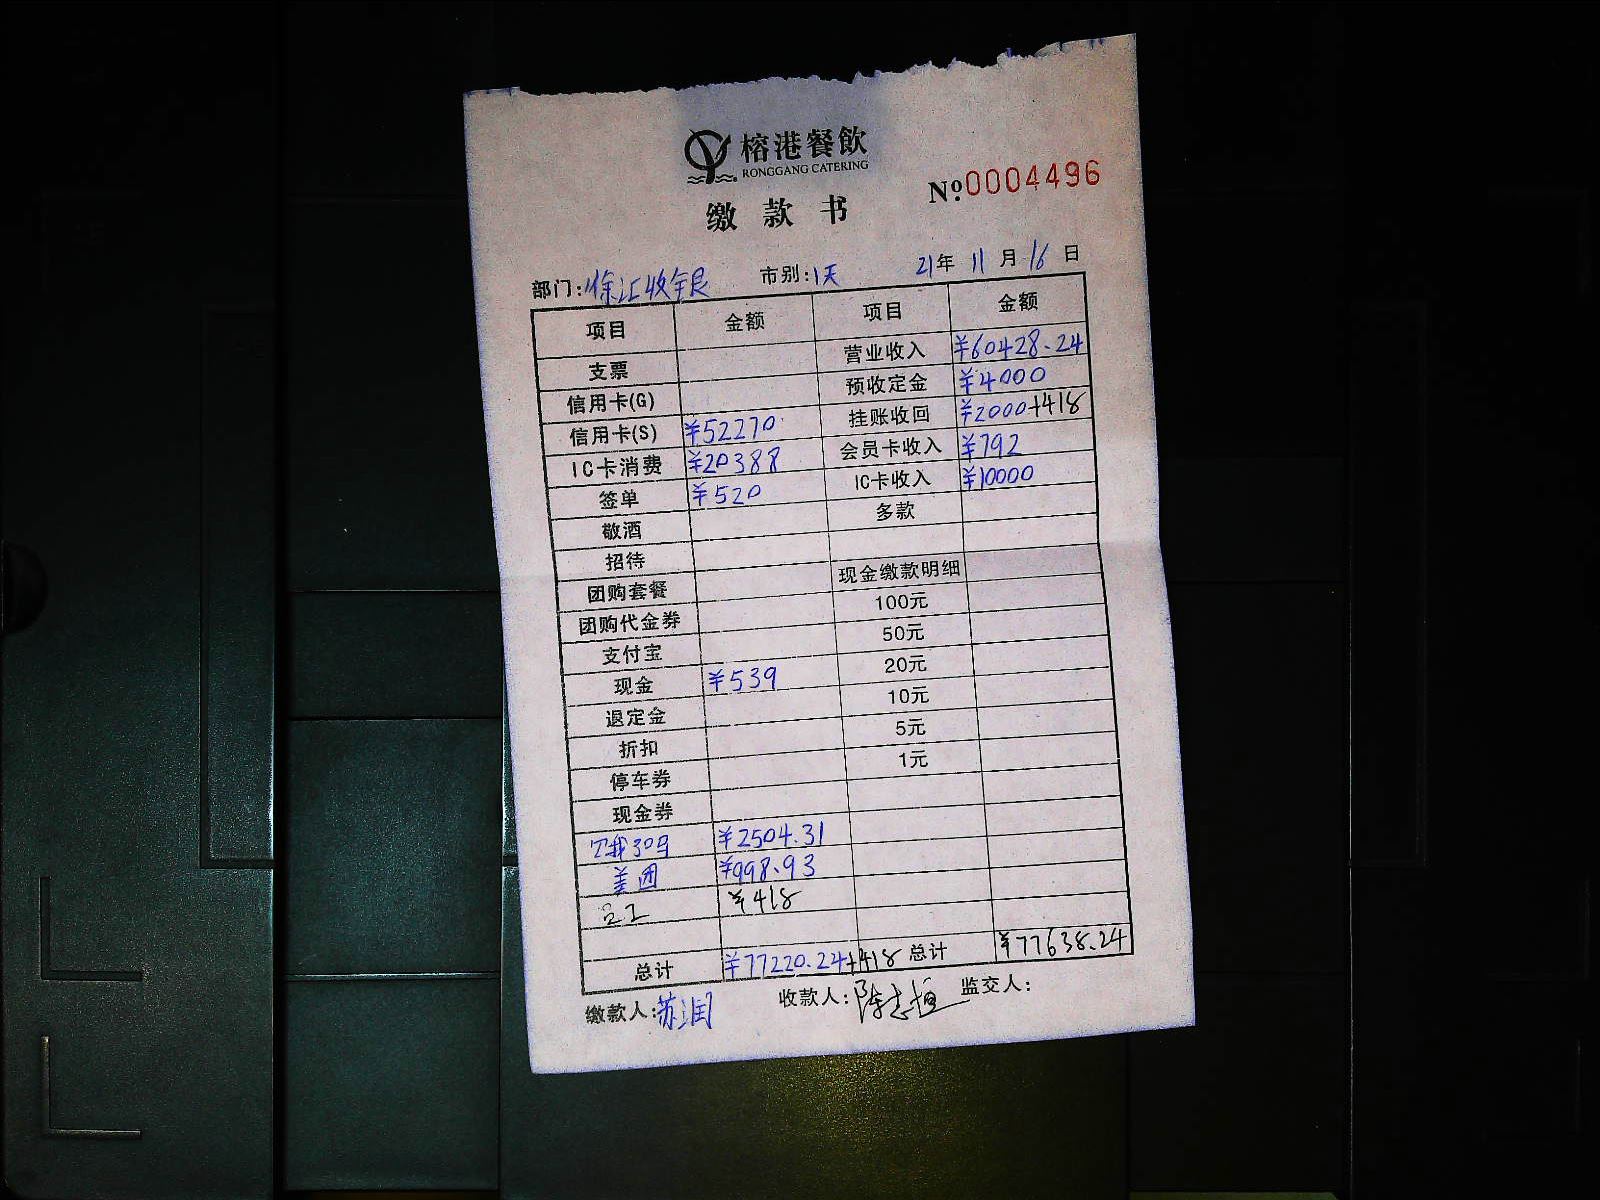 榕港餐飲
RONGGANG CATERING
No.0004496
缴款书
部门:徐汇收银 市别:1天 21年11月16日
项目 金额 项目 金额
支票 营业收入 ¥60428.24
信用卡(G) 预收定金 ¥4000
信用卡(S) ¥52270 挂账收回 ¥2000+418
IC卡消费 ¥20388 会员卡收入 ¥792
签单 ¥520 IC卡收入 ¥10000
敬酒 多款
招待
团购套餐 现金缴款明细
团购代金券 100元
支付宝 50元
现金 ¥539 20元
退定金 10元
折扣 5元
停车券 1元
现金券
¥2504.31
美团 ¥998.93
¥418
总计 ¥77220.24+418 总计 ¥77638.24
缴款人:苏润 收款人:陈志恒 监交人: